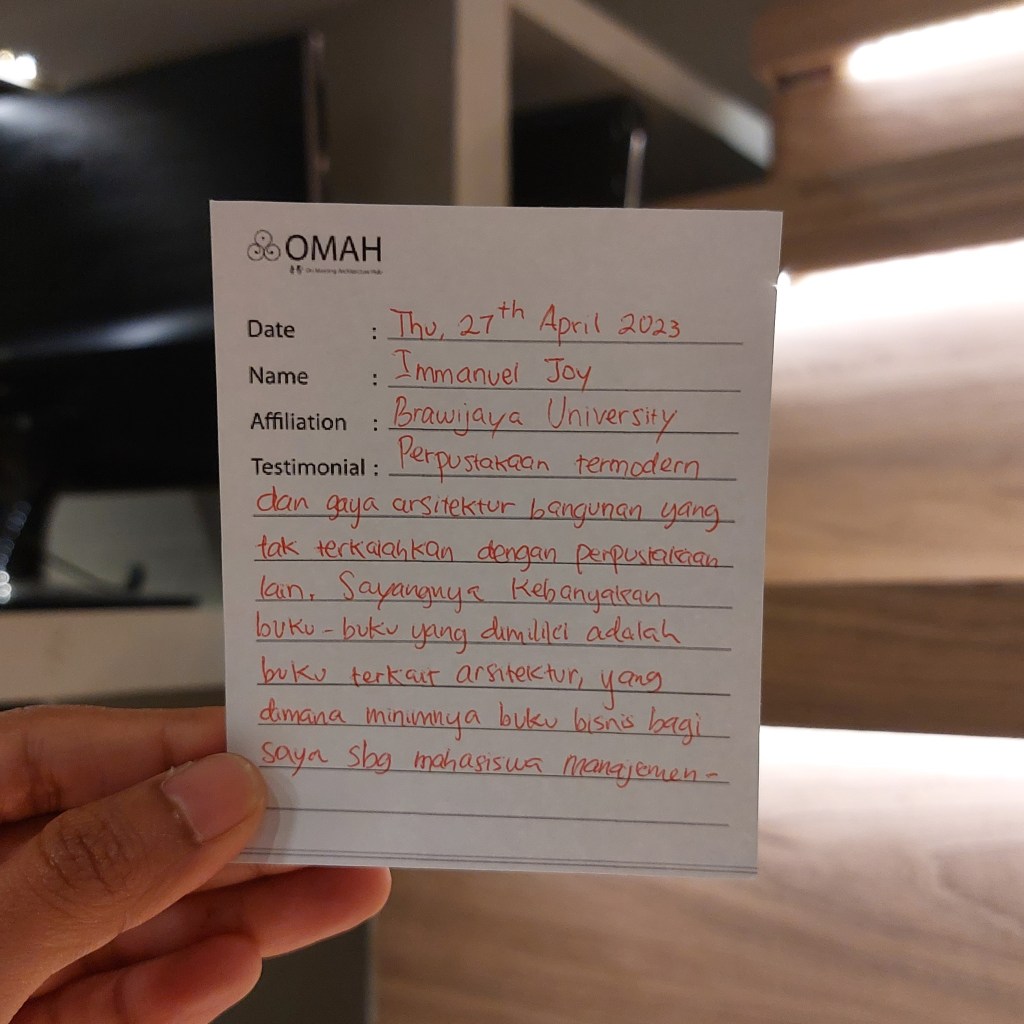 OMAH
Date : Thu, 27th April 2023
Name : Immanuel Joy
Affiliation : Brawijaya University
Testimonial : Perpustakaan termodern
dan gaya arsitektur bangunan yang
tak terkalahkan dengan perpustakaan
lain. Sayangnya kebanyakan
buku-buku yang dimiliki adalah
buku terkait arsitektur, yang
dimana minimnya buku bisnis bagi
saya sbg mahasiswa manajemen-